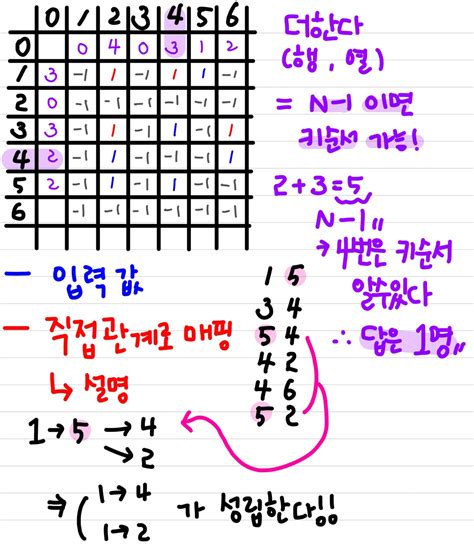 0 1 2 3 4 5 6
0 0 4 0 3 1 2
1 3 -1 1 -1 1 1 -1
2 0 -1 -1 -1 -1 -1 -1
3 3 -1 1 -1 1 -1 1
4 2 -1 1 -1 -1 -1 1
5 2 -1 1 -1 1 -1 -1
6 -1 -1 -1 -1 -1 -1
더한다
(행, 열)
= N-1 이면
키순서 가능!
2+3=5
N-1〃
→ 4번은 키순서
알수있다
∴ 답은 1명〃
— 입력 값
— 직접관계로 매핑
↳ 설명
1 5
3 4
5 4
4 2
4 6
5 2
1 → 5 → 4
↘ 2
⇒ ( 1→4
1→2
가 성립한다!!